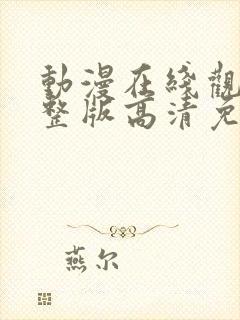 動漫在綫觀
整版高清免
燕尔